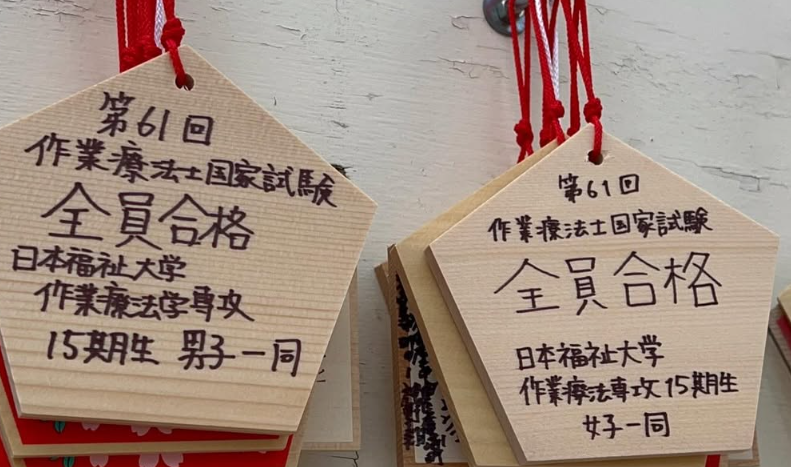 第61回
作業療法士国家試験
全員合格
日本福祉大学
作業療法学専攻
15期生 男子一同
第61回
作業療法士国家試験
全員合格
日本福祉大学
作業療法専攻15期生
女子一同